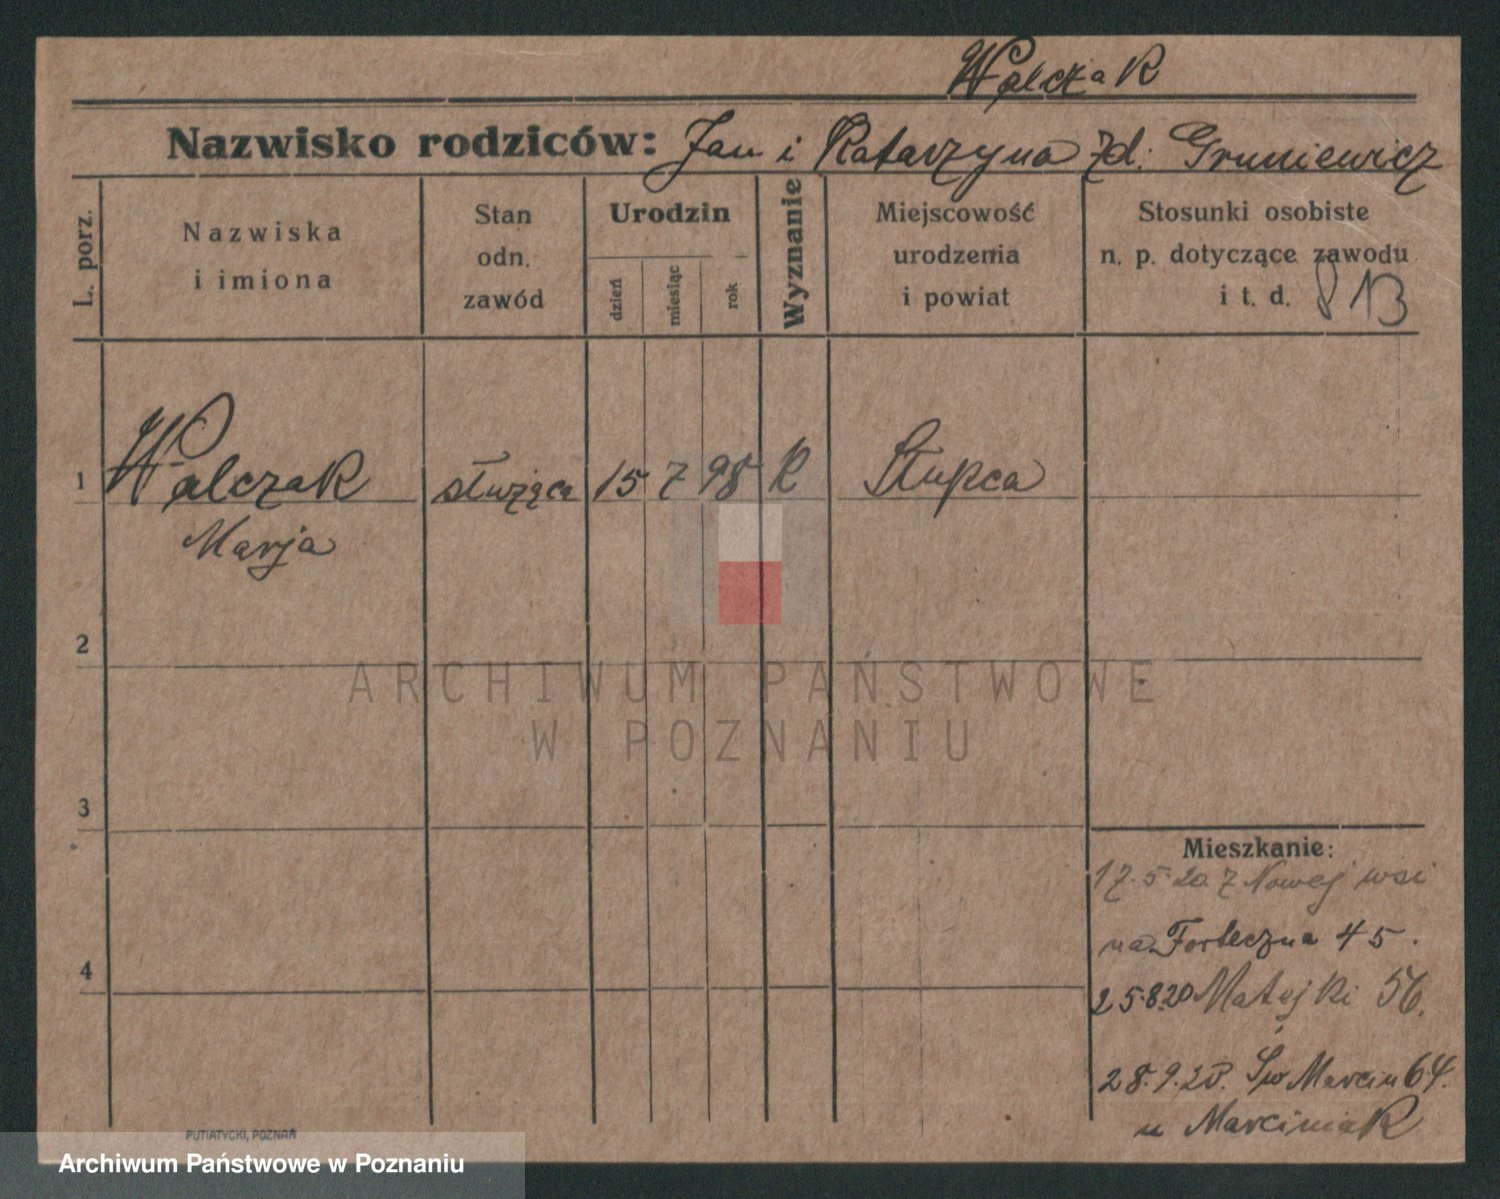 Walczak
Nazwisko rodziców: Jan i Katarzyna zd. Gruniewicz
L. porz.
Nazwiska
i imiona
Stan
odn.
zawód
Urodzin
dzień
miesiąc
rok
Wyznanie
Miejscowość
urodzenia
i powiat
Stosunki osobiste
n. p. dotyczące zawodu
i t. d.
13
1 Walczak służąca 15 7 98 K Słupca
Marja
2
ARCHIWUM PAŃSTWOWE
W POZNANIU
3
Mieszkanie:
17.5.20. z Nowej wsi
na Forteczna 45.
4
25.8.20 Matejki 56.
28.9.20. Św Marcin 64.
u Marciniak
PUTIATYCKI, POZNAŃ
Archiwum Państwowe w Poznaniu